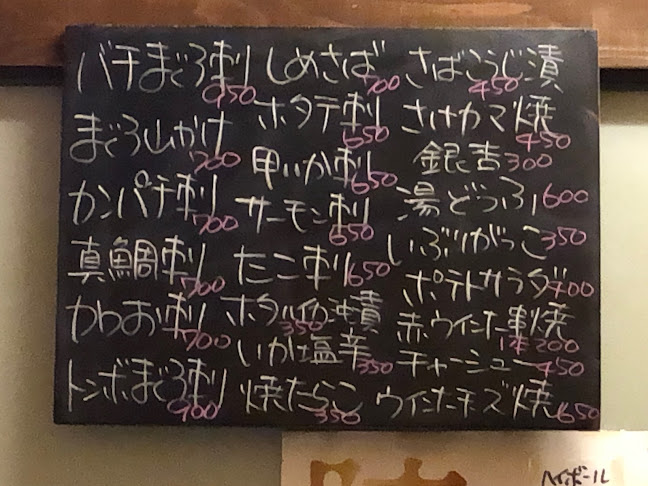 バチまぐろ刺 950
まぐろ山かけ 700
カンパチ刺 700
真鯛刺 700
かつお刺 700
トンボまぐろ刺 900
しめさば 700
ホタテ刺 650
甲いか刺 650
サーモン刺 650
たこ刺 650
ホタルイカ沖漬 350
いか塩辛 350
焼たらこ 350
さばこうじ漬 450
さけカマ焼 450
銀杏 300
湯どうふ 600
いぶりがっこ 350
ポテトサラダ 400
赤ウインナー串焼 1本200
チャーシュー 450
ウインナーチーズ焼 650
ハイボール